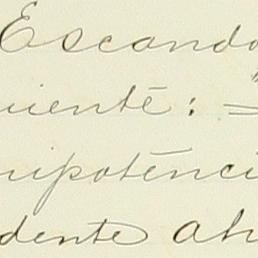 Escando
uiente: =
nipotenci
dente ah